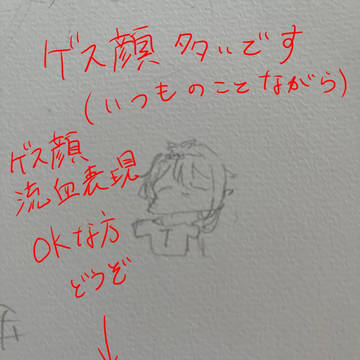 ゲス顔 多いです
(いつものことながら)
ゲス顔
流血表現
OKな方
どうぞ